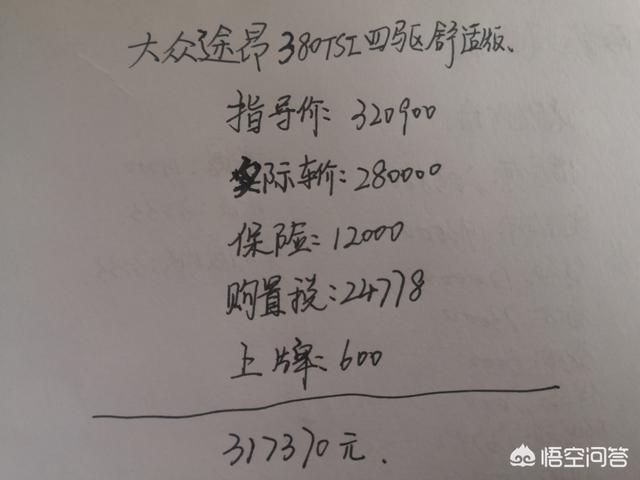 大众途昂380TSI四驱舒适版、
指导价：320900
实际车价：280000
保险：12000
购置税：24778
上牌：600
317370元.
悟空问答